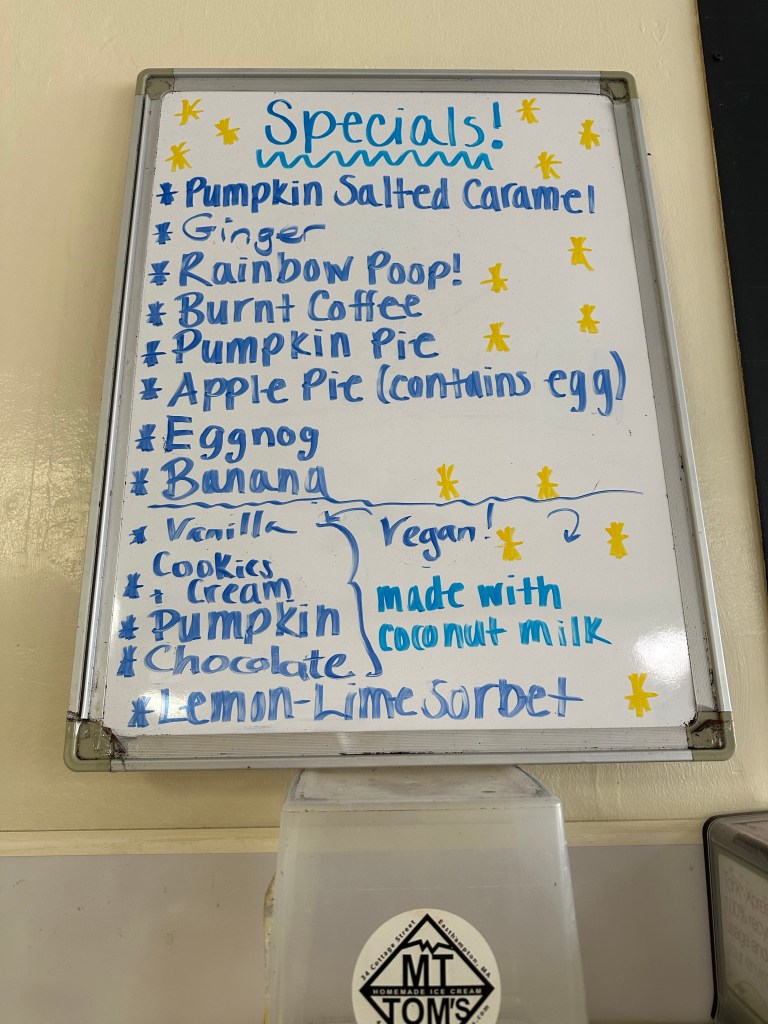 Specials!
* Pumpkin Salted Caramel
* Ginger
* Rainbow Poop!
* Burnt Coffee
* Pumpkin Pie
* Apple Pie (contains egg)
* Eggnog
* Banana
* Vanilla
Vegan!
* Cookies
+ Cream
made with
* Pumpkin
coconut milk
* Chocolate
* Lemon-Lime Sorbet
34 Cottage Street Easthampton, MA
MT
HOMEMADE ICE CREAM
TOM'S